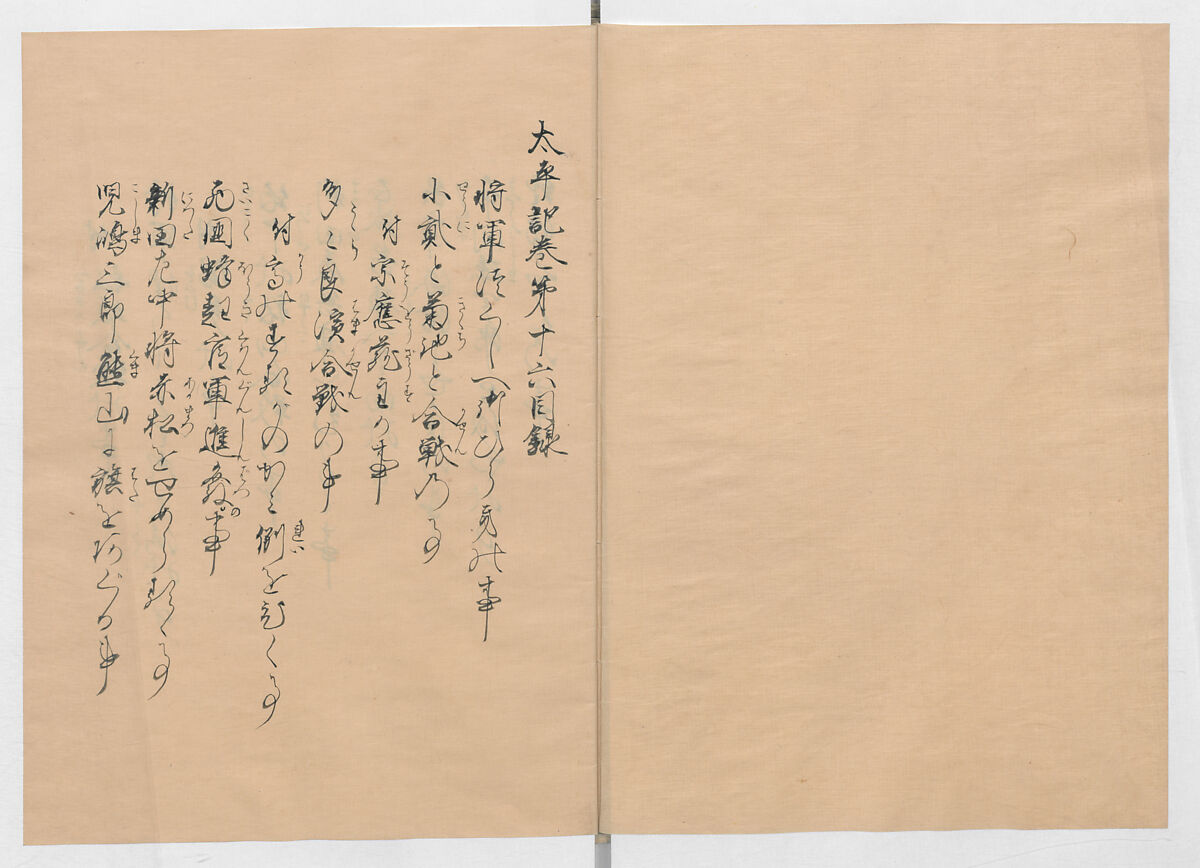 太平記巻第十六目録
将軍つくしへ御ひらきの事
小貳と菊池と合戦の事
付宗應蔵主か事
多々良濱合戦の事
付高のするかのかみ例をひく事
西国蜂起官軍進發事
新田左中将赤松をせめらるゝ事
児嶋三郎熊山に旗をあくる事